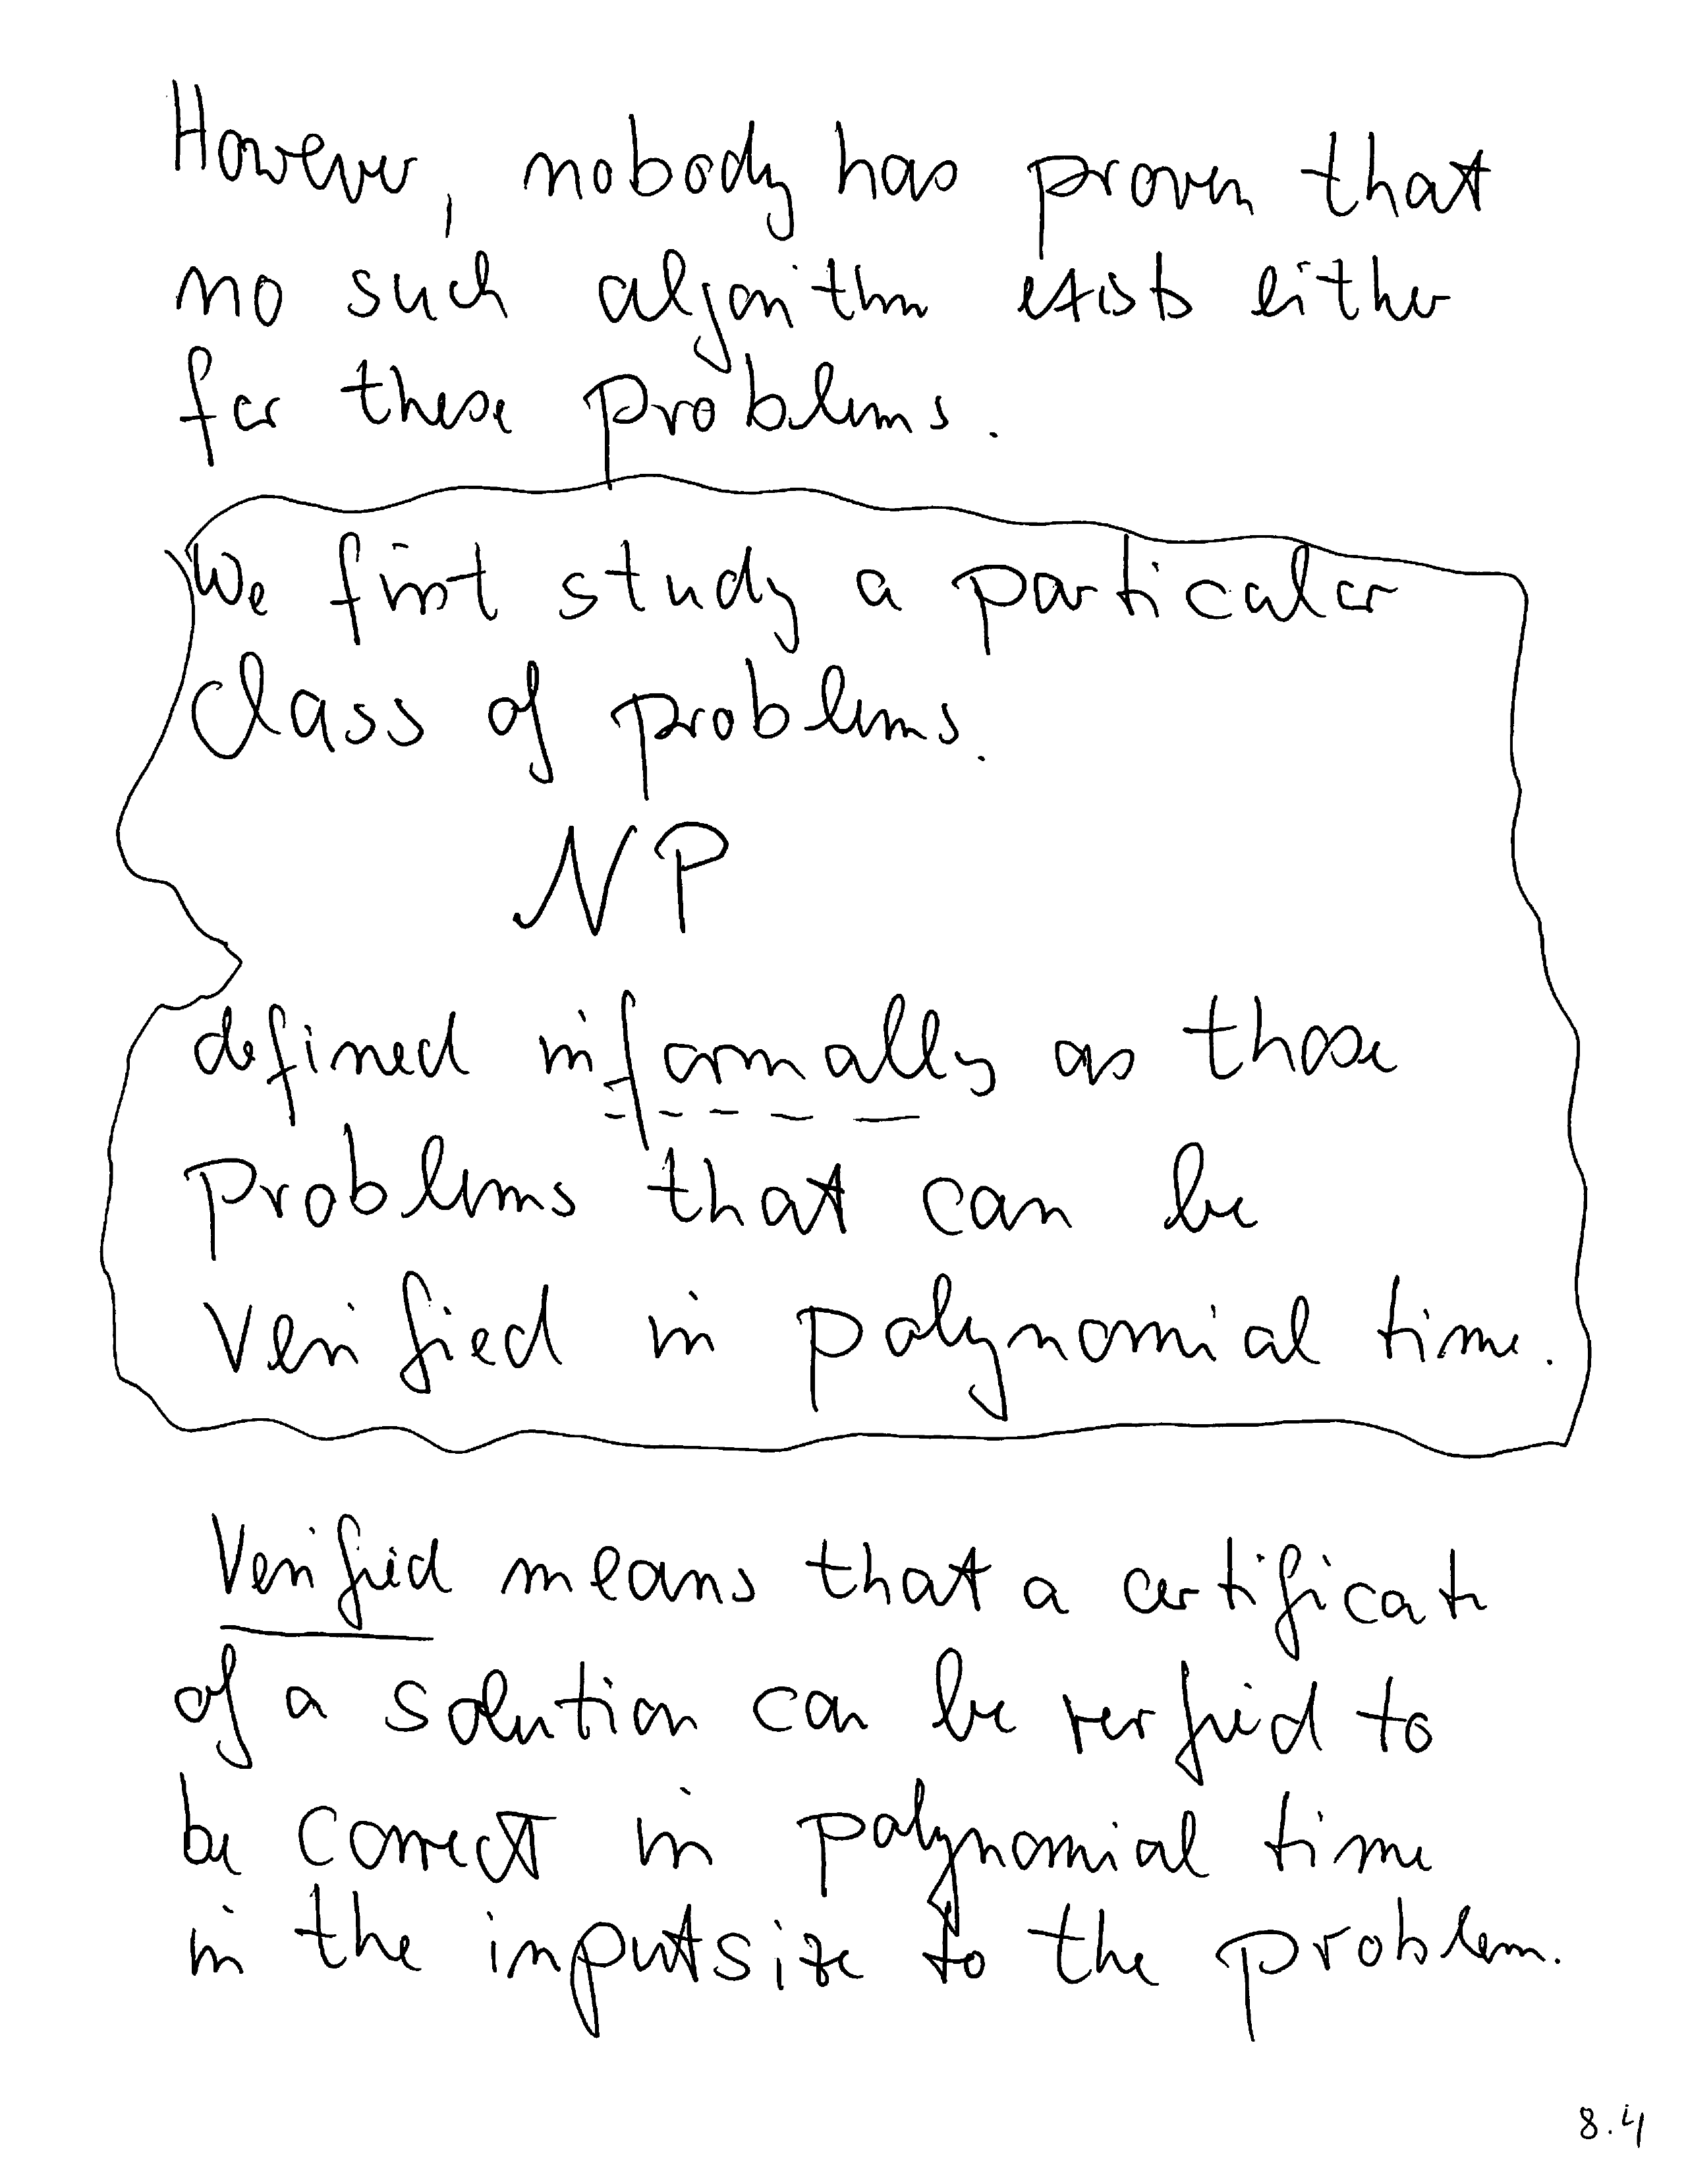 However, nobody has proven that
no such algorithm exists either
for these problems.
We first study a particular
class of problems.
NP
defined informally as those
problems that can be
verified in polynomial time.
Verified means that a certificate
of a solution can be verified to
be correct in polynomial time
in the inputsize to the problem.
8.4